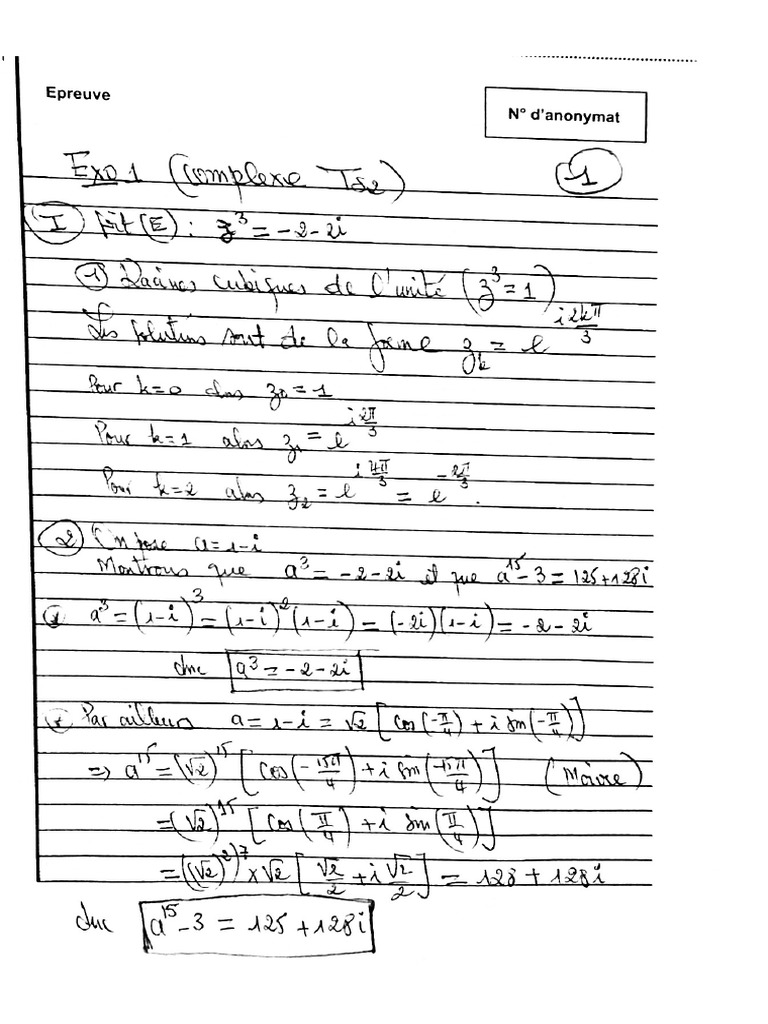 Epreuve
N° d'anonymat
Exo 1 (Complexe TS2)
1
I) Soit (E) : z³ = -2-2i
1) Racines cubiques de l'unité (z³ = 1)
Les solutions sont de la forme z_k = e^{i 2kπ/3}
Pour k=0 alors z₀ = 1
Pour k=1 alors z₁ = e^{i 2π/3}
Pour k=2 alors z₂ = e^{i 4π/3} = e^{-2π/3}.
2) On pose a = 1-i
Montrons que a³ = -2-2i et que a¹⁵-3 = 125+128i
* a³ = (1-i)³ = (1-i)²(1-i) = (-2i)(1-i) = -2-2i
donc a³ = -2-2i
* Par ailleurs a = 1-i = √2 [cos(-π/4) + i sin(-π/4)]
=> a¹⁵ = (√2)¹⁵ [cos(-15π/4) + i sin(-15π/4)] (Moivre)
= (√2)¹⁵ [cos(π/4) + i sin(π/4)]
= ((√2)²)⁷ × √2 [√2/2 + i √2/2] = 128 + 128i
donc a¹⁵-3 = 125+128i